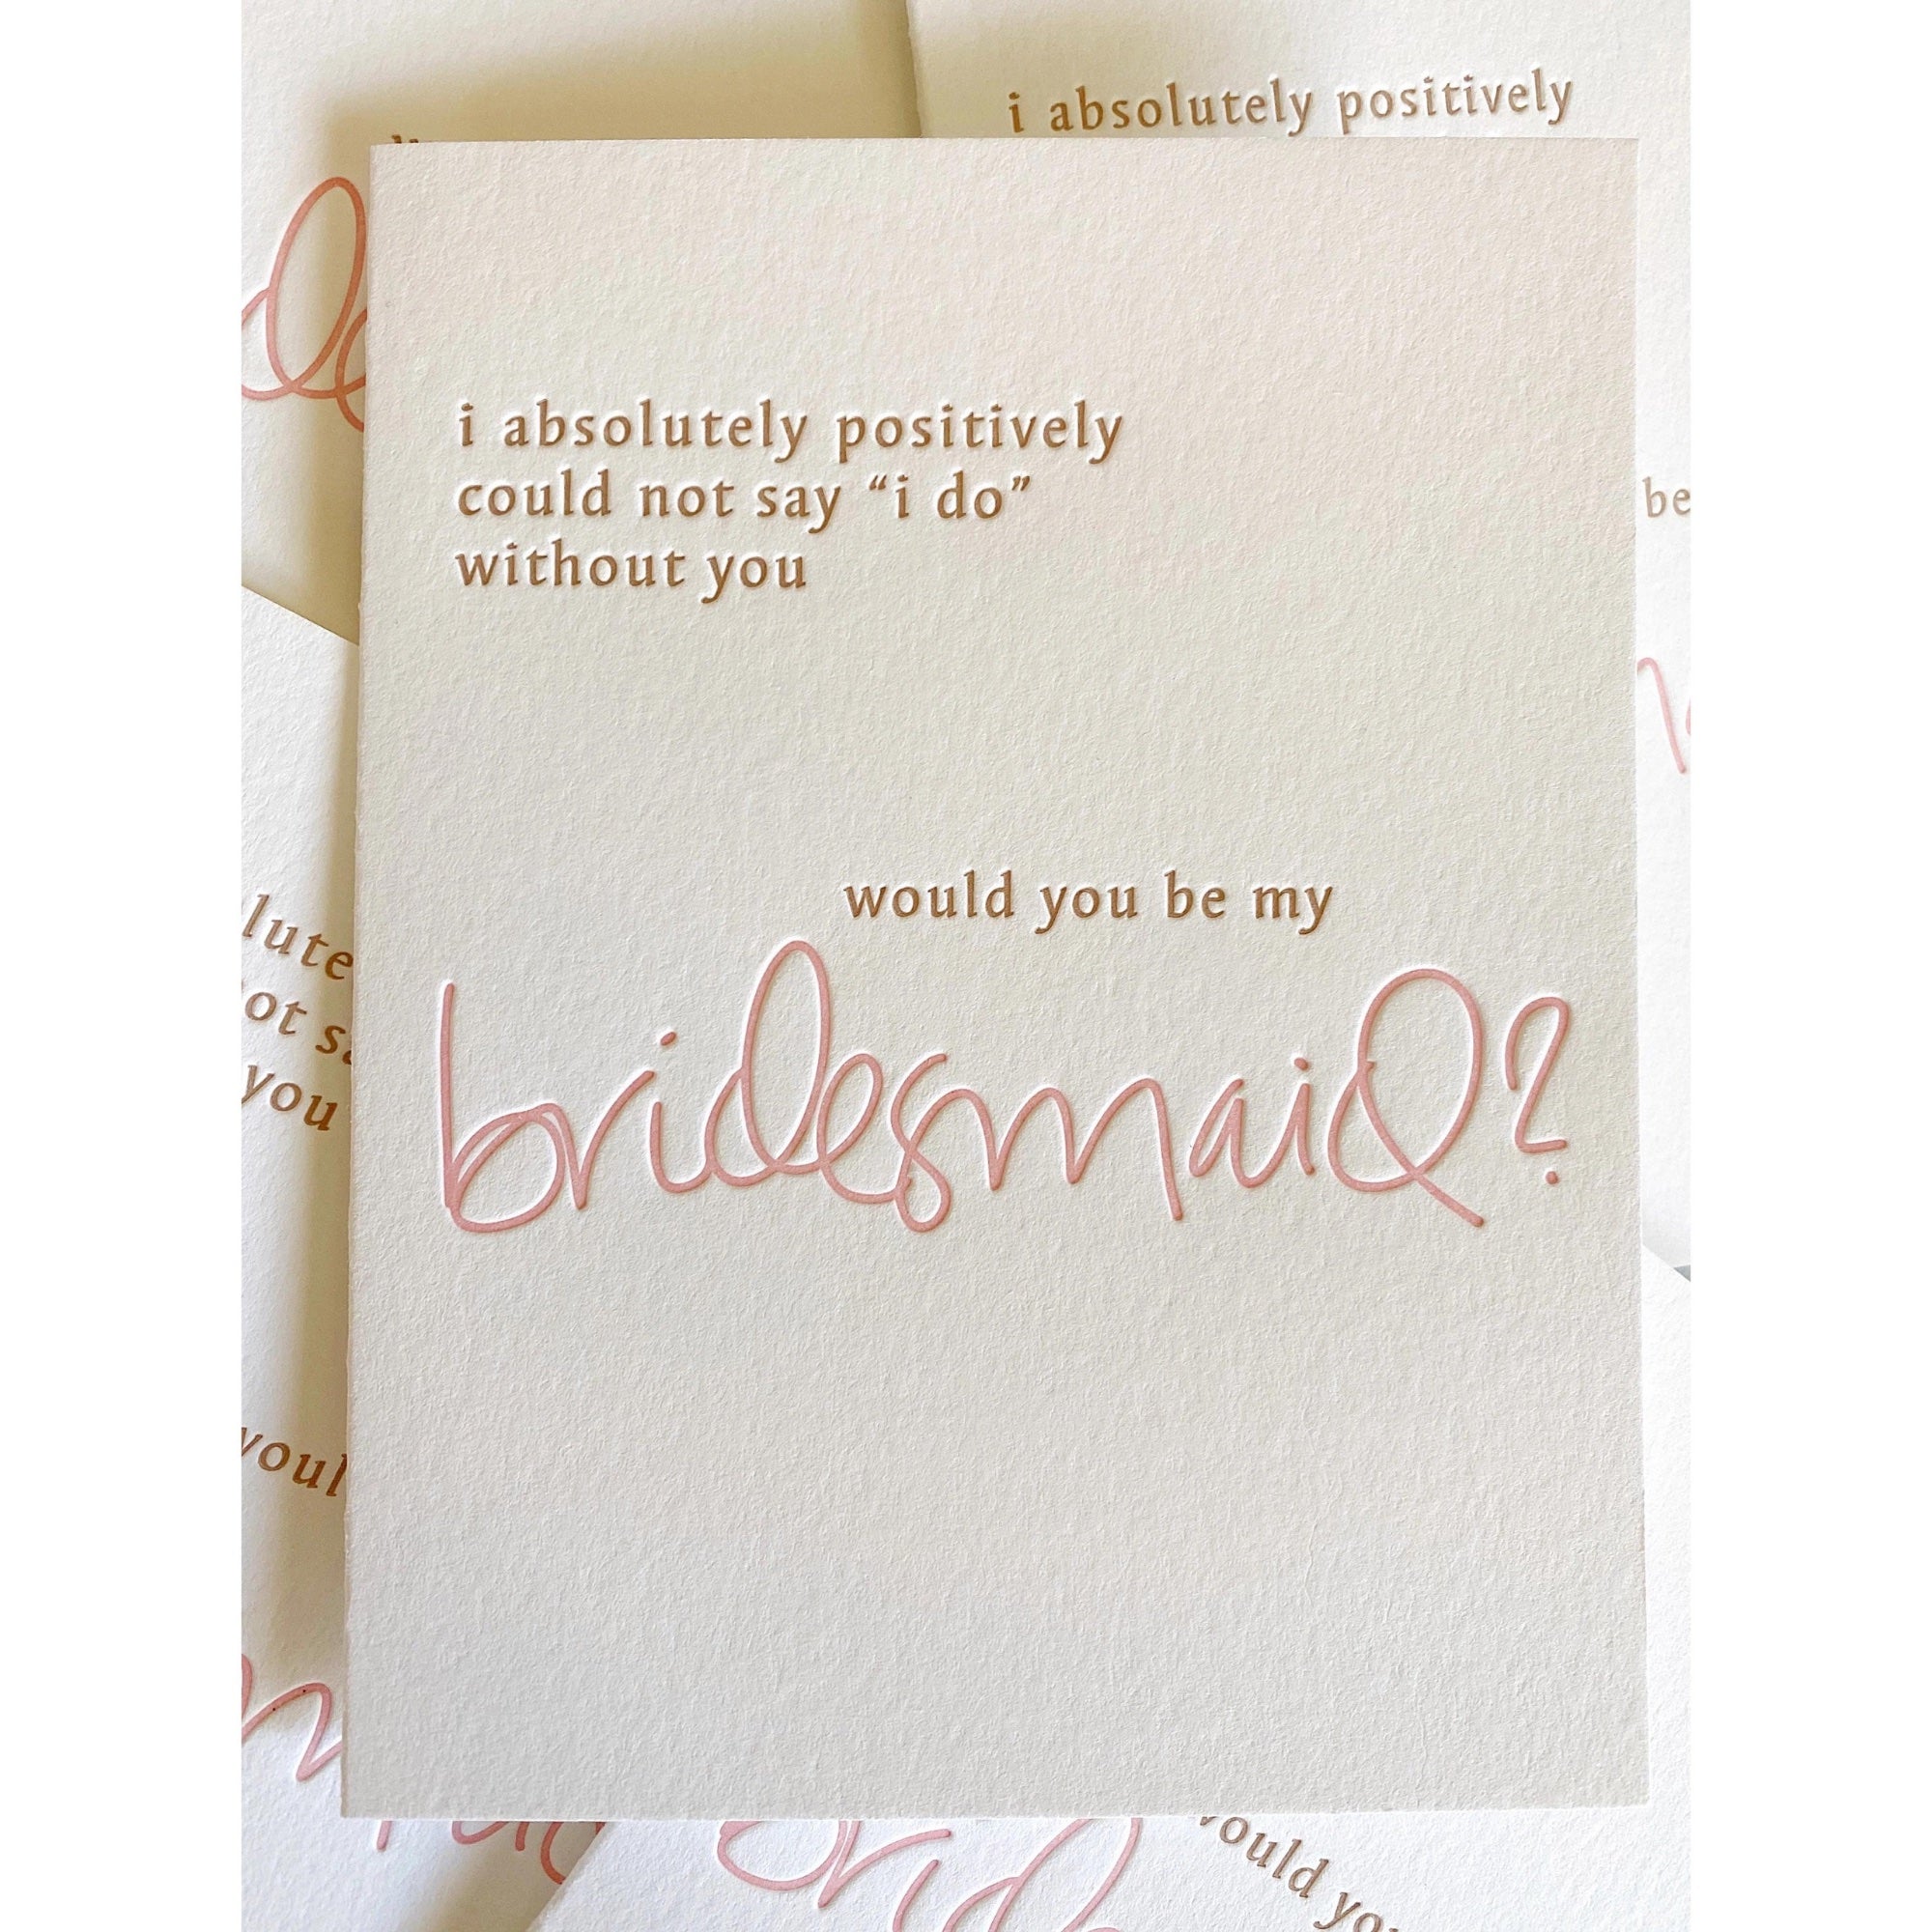 i absolutely positively
i absolutely positively
could not say “i do”
without you
be
would you be my
bridesmaid?
you
would you